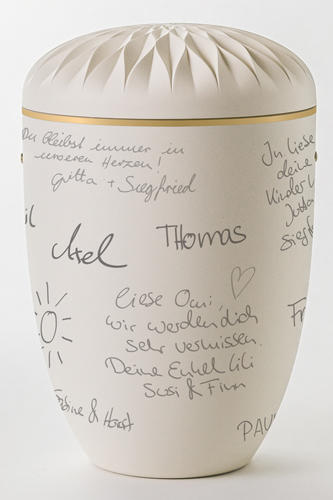 Du bleibst immer in
unseren Herzen!
Gitta + Siegfried
In Liebe
deine
Kinder
Axel
Thomas
Liebe Omi,
wir werden dich
sehr vermissen.
Deine Enkel Lili
Susi & Finn
& Horst